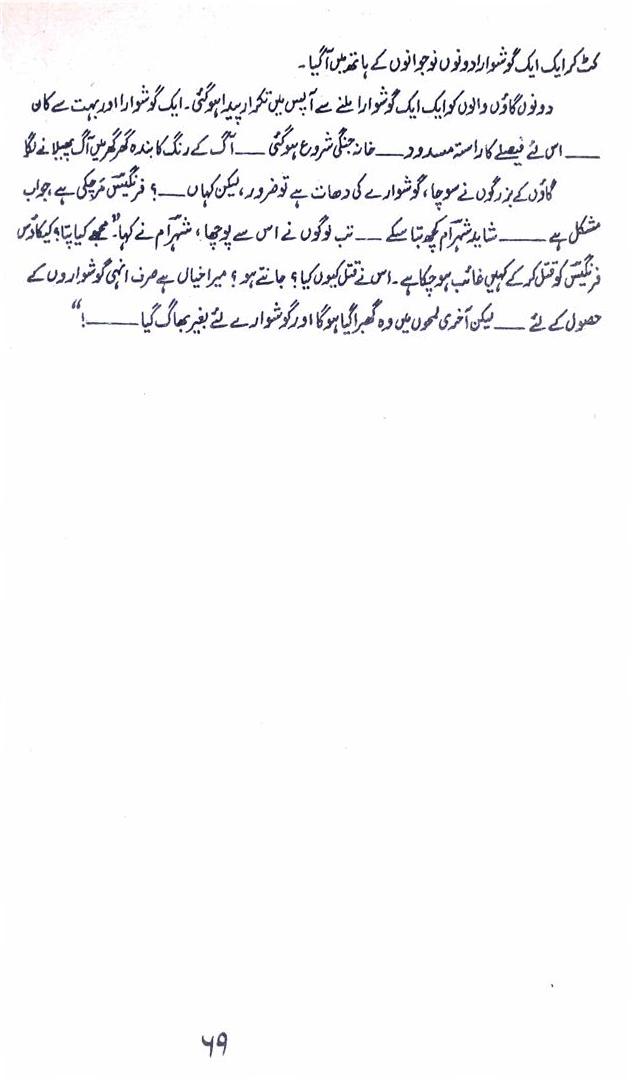 کٹ کر ایک ایک گوشوارا دونوں نوجوانوں کے ہاتھ میں آ گیا۔
دونوں گاؤں والوں کو ایک ایک گوشوارا ملنے سے آپس میں تکرار پیدا ہو گئی۔ ایک گوشوارا اور بہت سے کان
——— اس لئے فیصلے کا راستہ مسدود ——— خانہ جنگی شروع ہو گئی ——— آگ کے رنگ کا بندہ گھر گھر میں آگ پھیلانے لگا
گاؤں کے بزرگوں نے سوچا، گوشوارے کی دھات ہے تو ضرور، لیکن کہاں ———؟ فرنگیس مر چکی ہے، جواب
مشکل ہے ——— شاید شہرام کچھ بتا سکے ——— تب لوگوں نے اس سے پوچھا، شہرام نے کہا۔ "مجھے کیا پتا؟ کیکاؤس
فرنگیس کو قتل کر کے کہیں غائب ہو چکا ہے۔ اس نے قتل کیوں کیا؟ جانتے ہو؟ میرا خیال ہے صرف انہی گوشواروں کے
حصول کے لئے ——— لیکن آخری لمحوں میں وہ گھبرا گیا ہو گا اور گوشوارے لئے بغیر بھاگ گیا ———!"
۶۹